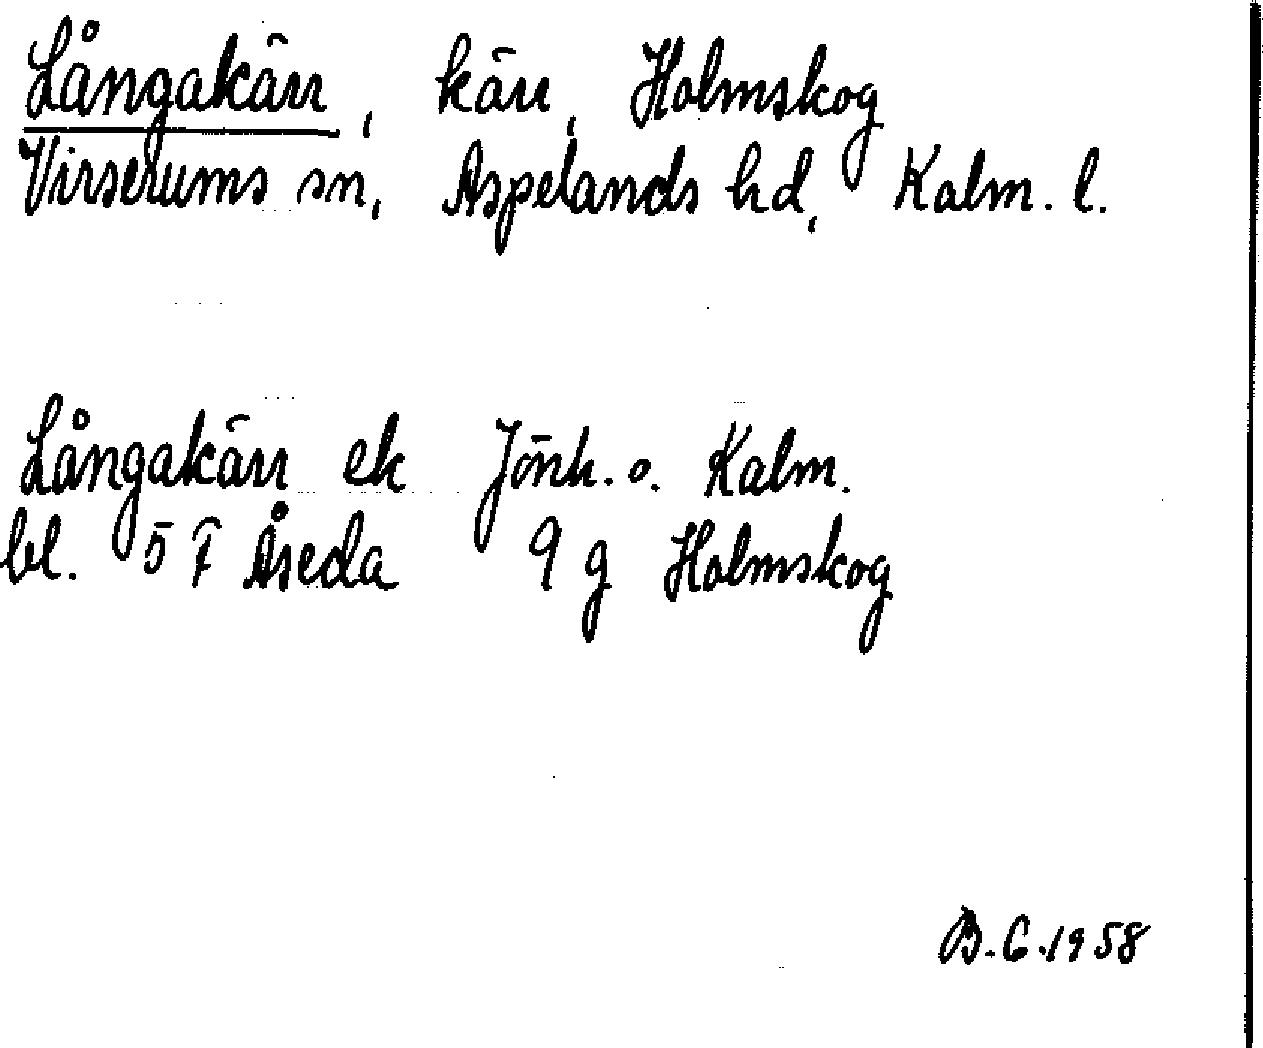 Långakärr, kärr, Holmskog
Virserums sn, Aspelands hd, Kalm. l.
Långakärr ek Jönk. o. Kalm.
bl. 5 F Åseda 9 g Holmskog
B.C.1958